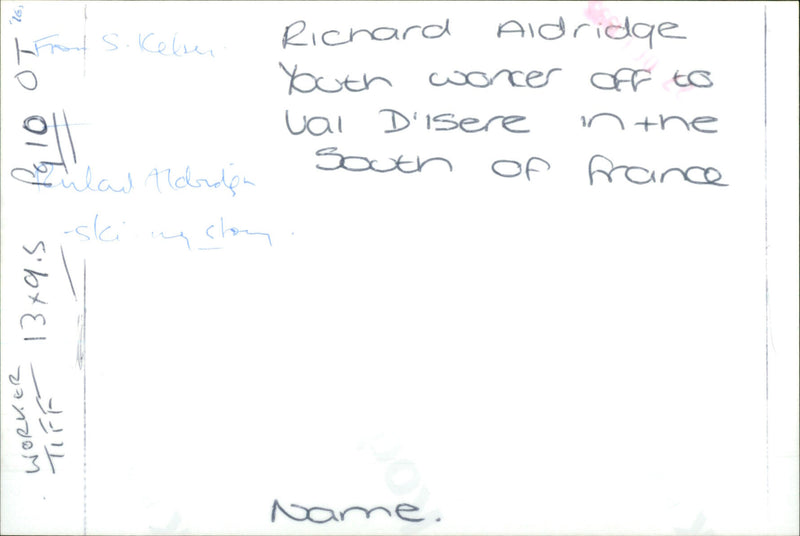 Richard Aldridge
Youth worker off to
Val D'isere in the
South of France
From S. Kelsey.
Richard Aldridge
skiing story.
Pg 10 OT
13 x 9.5
WORKER
TIFF
Name.